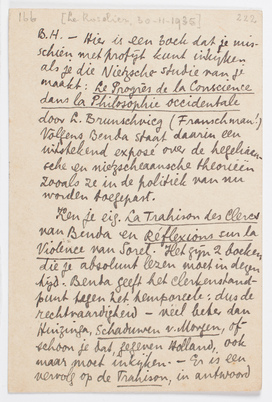 166 [Le Roselier, 30-11-1935] 222
B.H. – Hier is een boek dat je mis-
schien met profijt kunt inkijken
als je die Nietzsche-studie van je
maakt: Le Progrès de la Conscience
dans la Philosophie occidentale
door L. Brunschvicg (Franschman!)
Volgens Benda staat daarin een
uitstekend exposé over de hegeliaan-
sche en nietzscheaansche theorieën
zooals ze in de politiek van nu
worden toegepast.
Ken je eig. La Trahison des Clercs
van Benda en Réflexions sur la
Violence van Sorel? Het zijn 2 boeken
die je absoluut lezen moet in dezen
tijd. Benda geeft het clerkenstand-
punt tegen het temporeele: dus de
rechtvaardigheid – veel beter dan
Huizinga, Schaduwen v. Morgen, of-
schoon je dat, gegeven Holland, ook
maar moet inkijken. – Er is een
vervolg op de Trahison, in antwoord